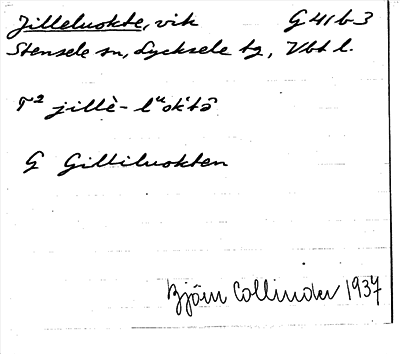 Jilleluokte, vik G 41 b 3
Stensele sn, Lycksele tg, Vbt l.
T² jillè- lᵘok'tâ
G Gilliluokten
Björn Collinder 1937